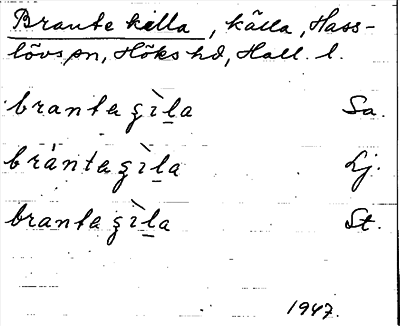 Brante källa, källa, Hass-
lövs sn, Höks hd, Hall. l.
brantagìḻa Sa.
bràntagìḻa Lj.
brantagìḻa St.
1947.